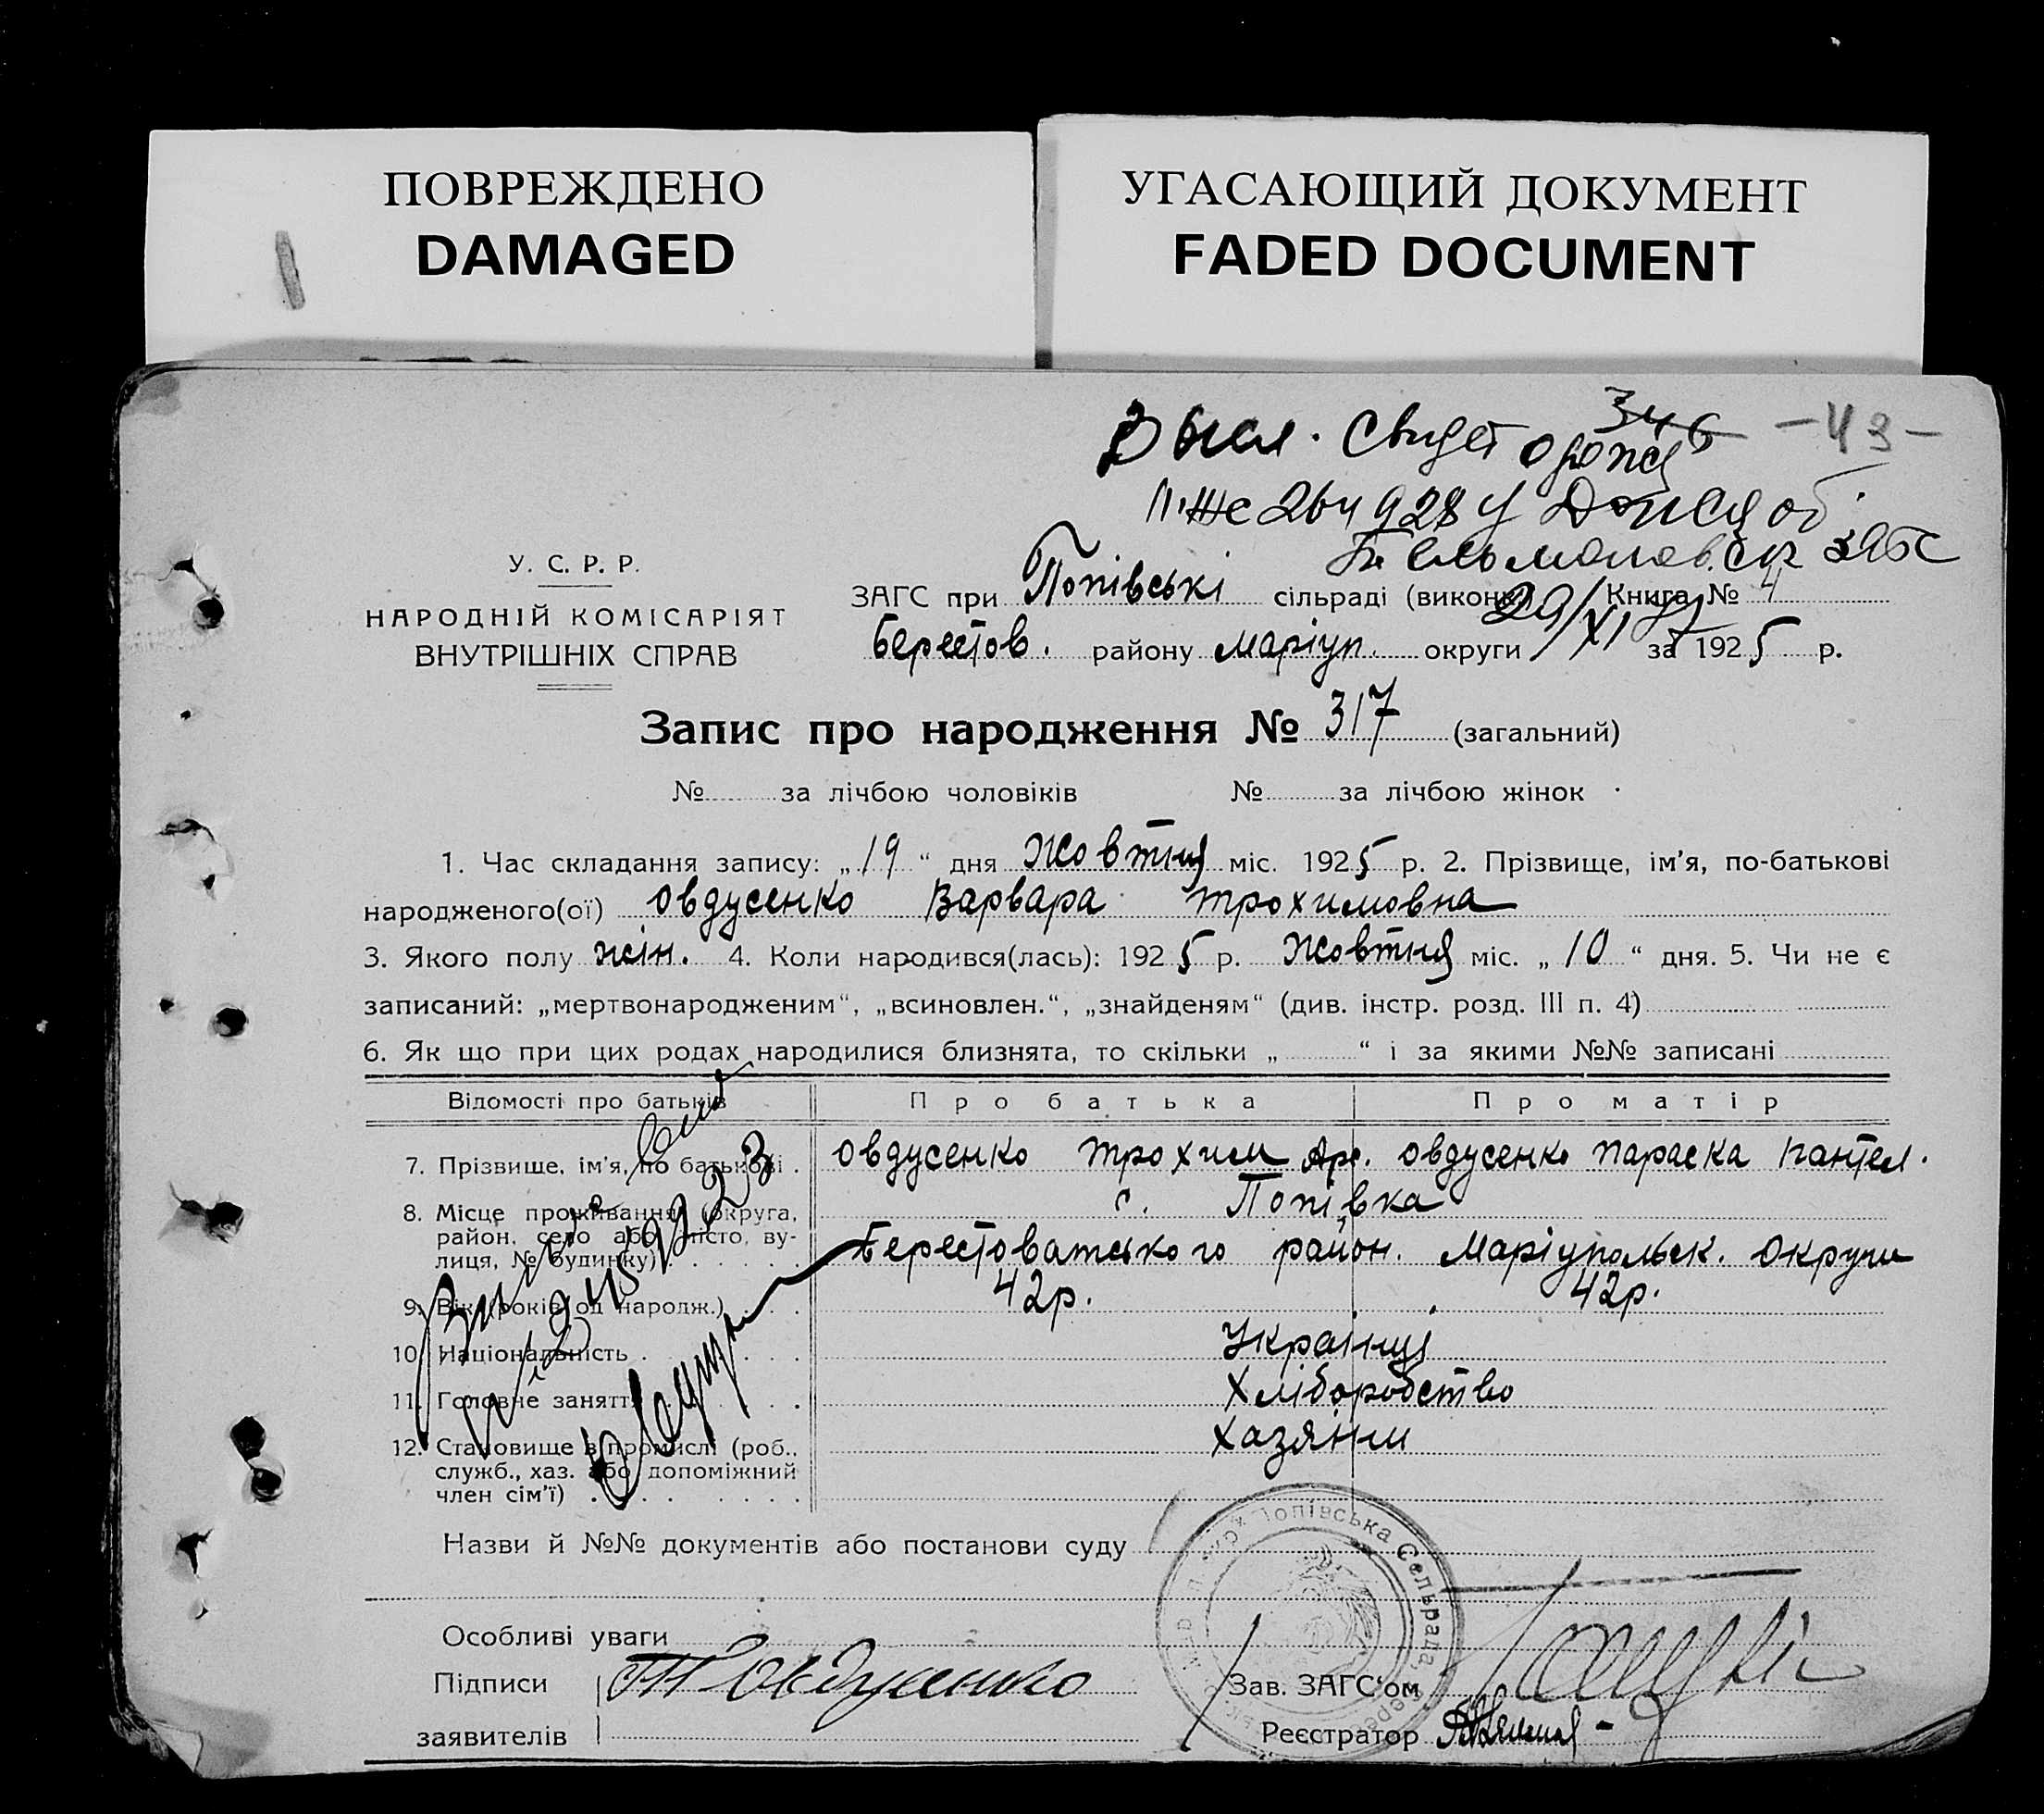 ПОВРЕЖДЕНО
DAMAGED
УГАСАЮЩИЙ ДОКУМЕНТ
FADED DOCUMENT
346 - 43 -
свидет о рожд
У. С. Р. Р.
НАРОДНІЙ КОМІСАРІЯТ
ВНУТРІШНІХ СПРАВ
ЗАГС при Попівські сільраді (виконк) Книга № 4
Берестов. району Маріуп. округи за 1925 р.
29/XI
Запис про народження № 317 (загальний)
№ за лічбою чоловіків № за лічбою жінок
1. Час складання запису: „19“ дня Жовтня міс. 1925 р. 2. Прізвище, ім’я, по-батькові
народженого(ої) Овдусенко Варвара Трохимовна
3. Якого полу жін. 4. Коли народився(лась): 1925 р. Жовтня міс. „10“ дня. 5. Чи не є
записаний: „мертвонародженим“, „всиновлен.“, „знайденям“ (див. інстр. розд. III п. 4)
6. Як що при цих родах народилися близнята, то скільки „ “ і за якими №№ записані
Відомості про батьків Про батька Про матір
7. Прізвище, ім’я, по батькові. Овдусенко Трохим Ар. Овдусенко Параска Пантел.
8. Місце проживання (округа, с. Попівка
район, село або місто, ву-
лиця, № будинку) Берестоватського район. Маріупольськ. Округи
9. Вік (років од народж.) 42р. 42р.
10. Національність Українці
11. Головне заняття Хліборобство
12. Становище в промислі (роб., Хазяїни
служб., хаз. або допоміжний
член сім’ї)
Назви й №№ документів або постанови суду
Попівська Сельрада
Особливі уваги
Підписи Т Овдусенко Зав. ЗАГС‘ом
заявителів Реєстратор